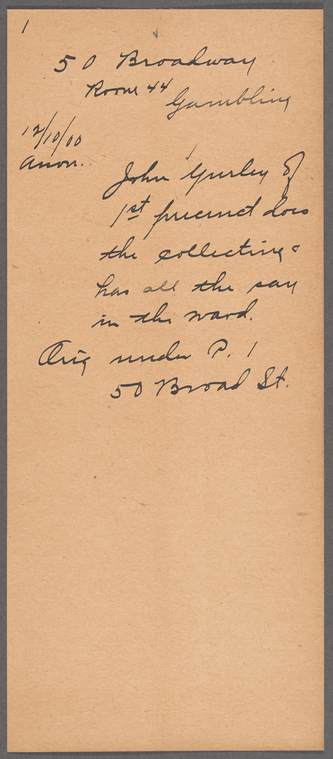 1
50 Broadway
Room 44
Gambling
12/10/00
Anon.
John Gurley of
1st precinct does
the collecting &
has all the say
in the ward.
Orig under P. 1
50 Broad St.